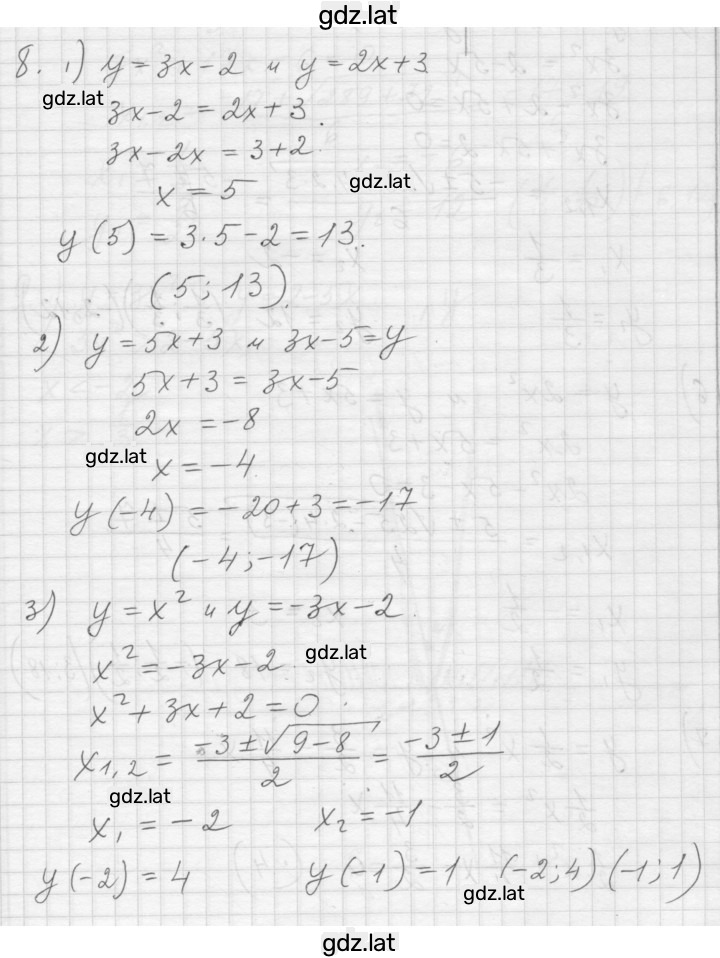 gdz.lat
8. 1) y = 3x - 2 и y = 2x + 3
gdz.lat
3x - 2 = 2x + 3
3x - 2x = 3 + 2
gdz.lat
x = 5
y(5) = 3·5 - 2 = 13.
(5; 13)
2) y = 5x + 3 и 3x - 5 = y
5x + 3 = 3x - 5
2x = -8
gdz.lat
x = -4
y(-4) = -20 + 3 = -17
(-4; -17)
3) y = x² и y = -3x - 2
gdz.lat
x² = -3x - 2
x² + 3x + 2 = 0
x₁,₂ = (-3 ± √(9 - 8))/2 = (-3 ± 1)/2
gdz.lat
x₁ = -2 x₂ = -1
y(-2) = 4 y(-1) = 1 (-2; 4) (-1; 1)
gdz.lat
gdz.lat